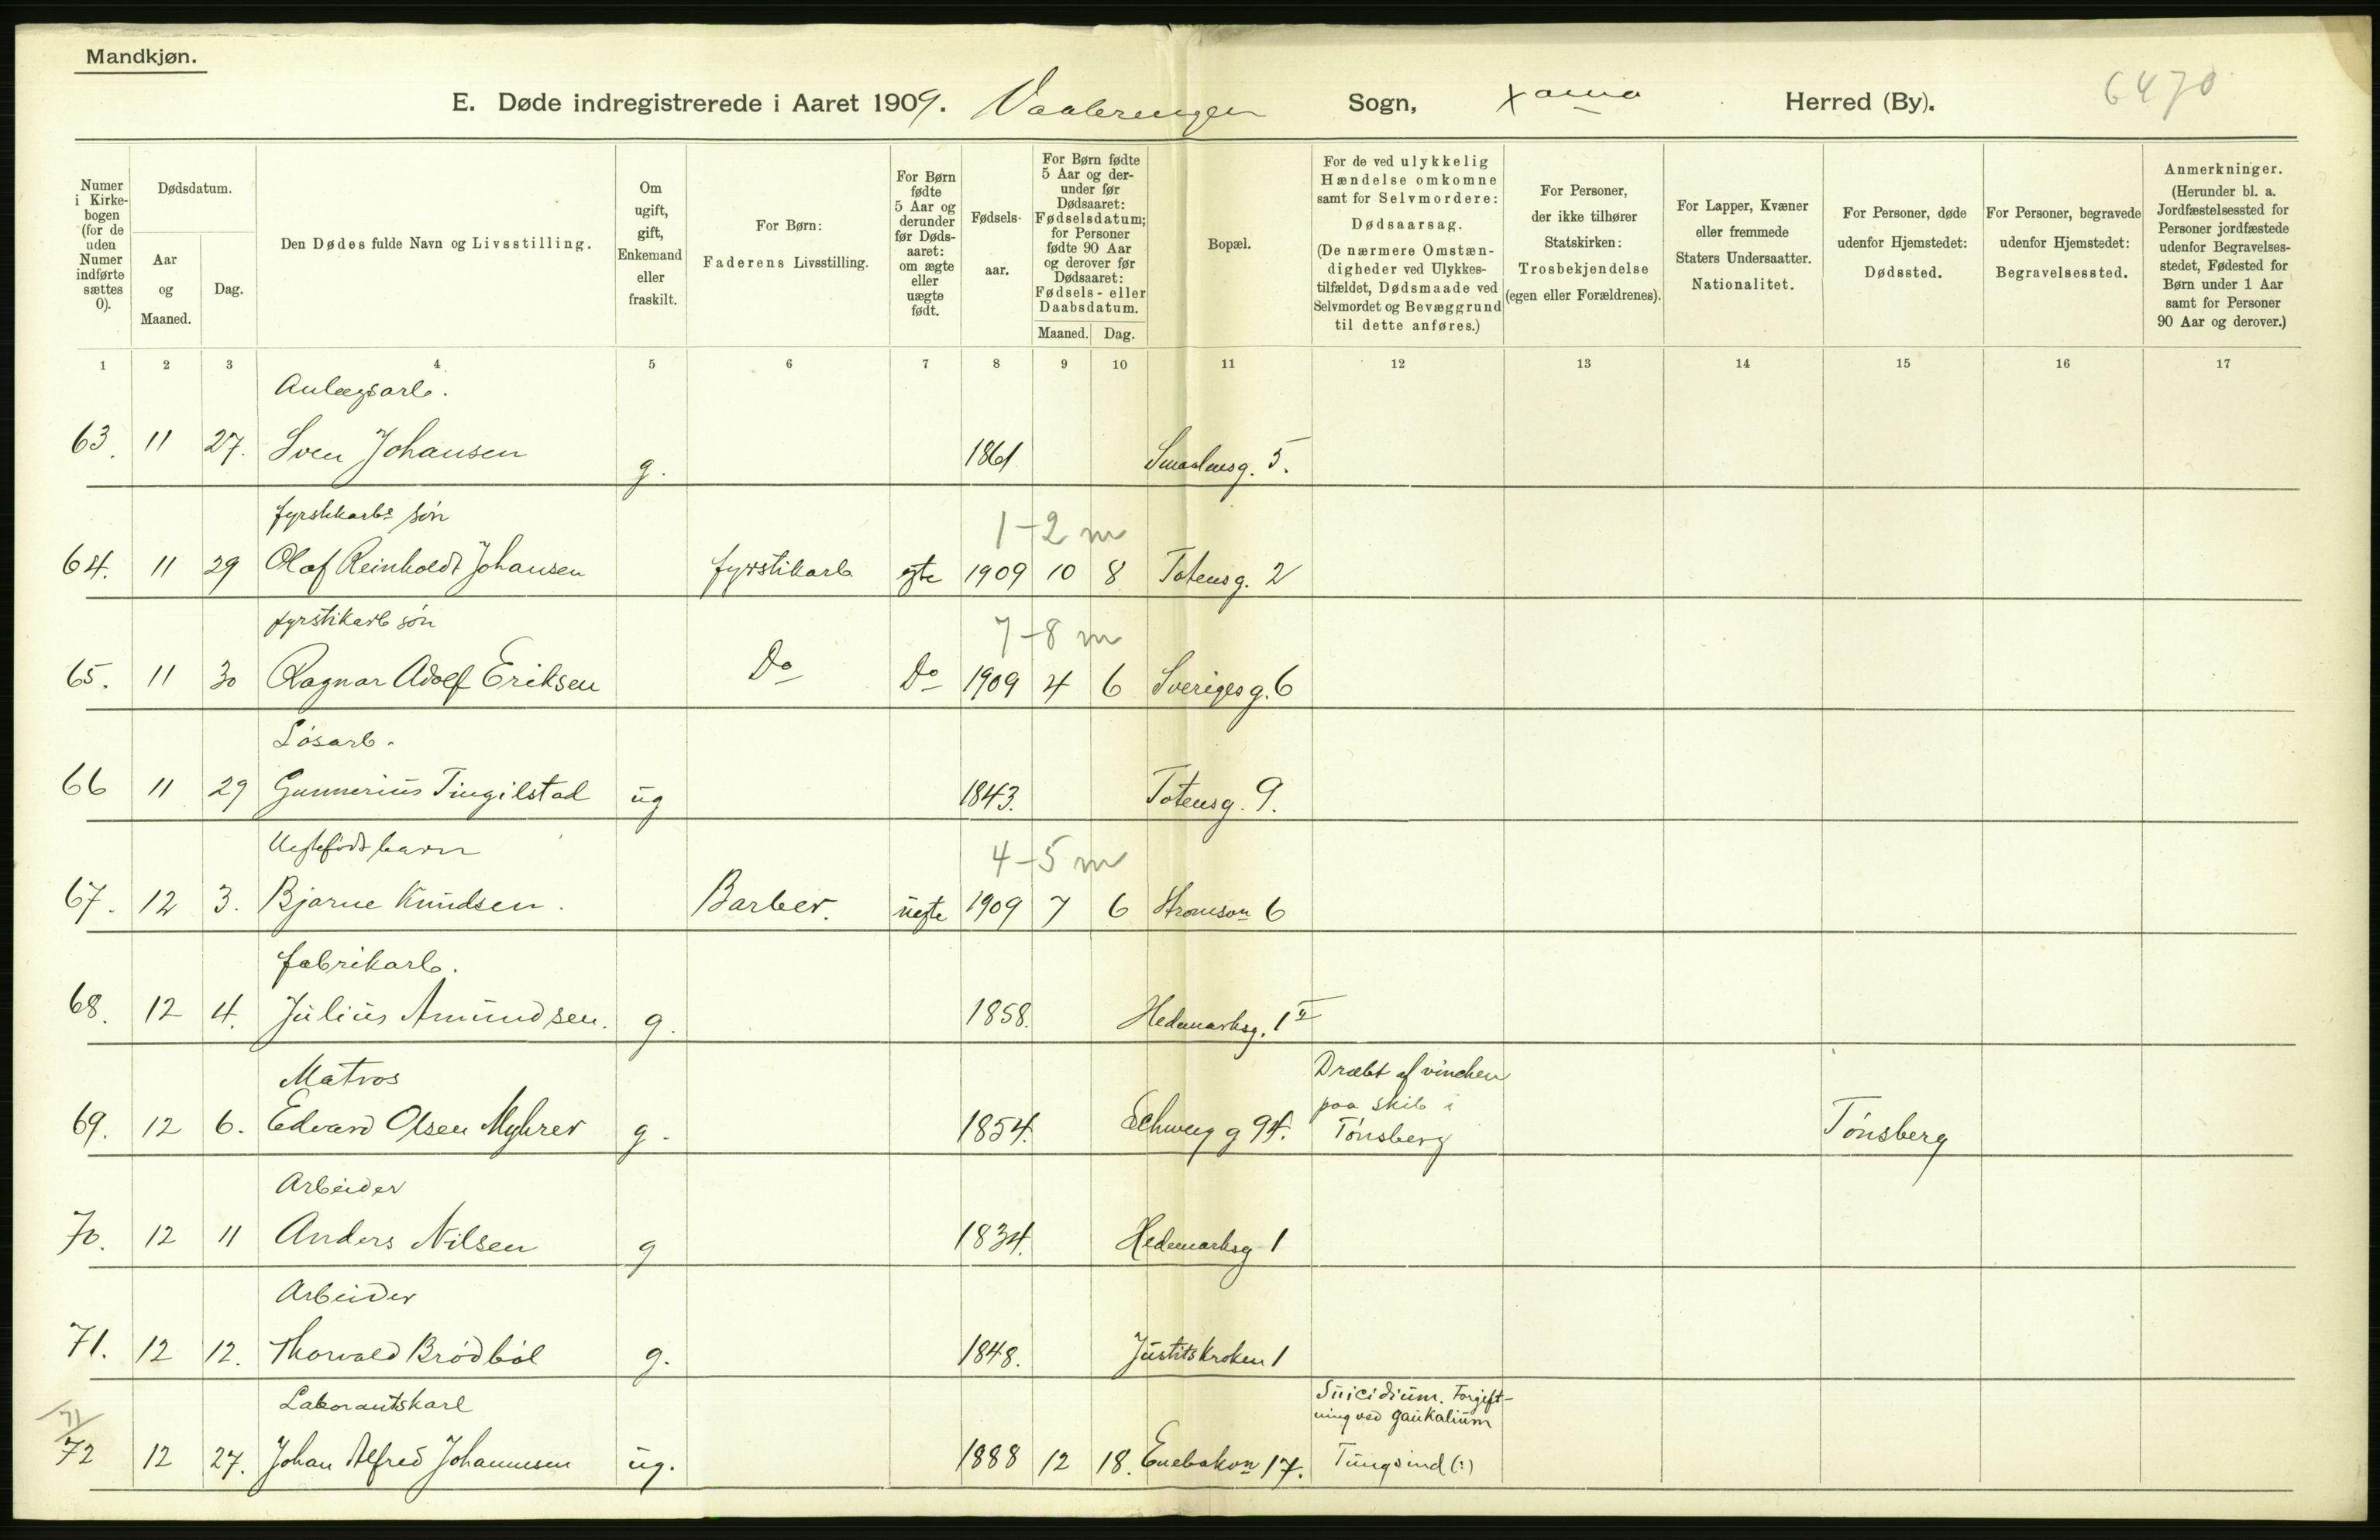 Mandkjøn.
E. Døde indregistrerede i Aaret 1909. Vaalerengen Sogn, Xania Herred (By).
6470
Numer i Kirkebogen (for de uden Numer indførte sættes 0).
Dødsdatum.
Aar og Maaned.
Dag.
Den Dødes fulde Navn og Livsstilling.
Om ugift, gift, Enkemand eller fraskilt.
For Børn: Faderens Livsstilling.
For Børn fødte 5 Aar og derunder før Dødsaaret: om ægte eller uægte født.
Fødselsaar.
For Børn fødte 5 Aar og derunder før Dødsaaret: Fødselsdatum; for Personer fødte 90 Aar og derover før Dødsaaret: Fødsels- eller Daabsdatum.
Maaned. Dag.
Bopæl.
For de ved ulykkelig Hændelse omkomne samt for Selvmordere: Dødsaarsag. (De nærmere Omstændigheder ved Ulykkestilfældet, Dødsmaade ved Selvmordet og Bevæggrund til dette anføres.)
For Personer, der ikke tilhører Statskirken: Trosbekjendelse (egen eller Forældrenes).
For Lapper, Kvæner eller fremmede Staters Undersaatter. Nationalitet.
For Personer, døde udenfor Hjemstedet: Dødssted.
For Personer, begravede udenfor Hjemstedet: Begravelsessted.
Anmerkninger. (Herunder bl. a. Jordfæstelsessted for Personer jordfæstede udenfor Begravelsesstedet, Fødested for Børn under 1 Aar samt for Personer 90 Aar og derover.)
1 2 3 4 5 6 7 8 9 10 11 12 13 14 15 16 17
Anlægsarb.
63. 11 27. Sven Johansen g. 1861 Smaalensg. 5.
fyrstikarbs søn
1-2 m
64. 11 29 Olaf Reinholdt Johansen fyrstikarb egte 1909 10 8 Totensg. 2
fyrstikarb søn
7-8 m
65. 11 30 Ragnar Adolf Eriksen Do Do 1909 4 6 Sverigesg. 6
Løsarb.
66 11 29 Gunnerius Tingilstad ug 1843. Totensg. 9.
Uegtefødt barn
4-5 m
67. 12 3. Bjarne Knudsen. Barber. uegte 1909 7 6 6
fabrikarb.
68. 12 4. Julius Amundsen. g. 1858. Hedemarksg. 1 II
Matros
Dræbt af vinchen
paa skib i
69. 12 6. Edvard Olsen Myhrer g. 1854. Schweig g 94. Tønsberg Tønsberg
Arbeider
70. 12 11 Anders Nilsen g 1834. Hedemarksg 1
Arbeider
71. 12 12. Thorvald Brødbøl g. 1848. Justitskroken 1
Laborantskarl
Suicidium. Forgift-
ning ved
71
72 12 27. Johan Alfred Johannesen ug. 1888 12 18. Enebakvn 17. Tungsind (?)